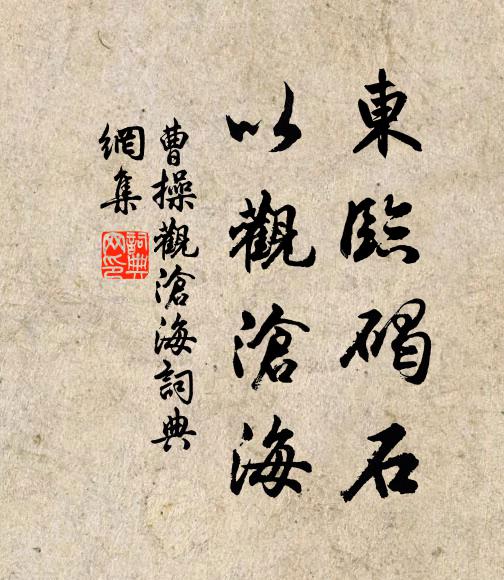 東臨碣石
以觀滄海
曹操觀滄海詞典
網集
詞典
网印